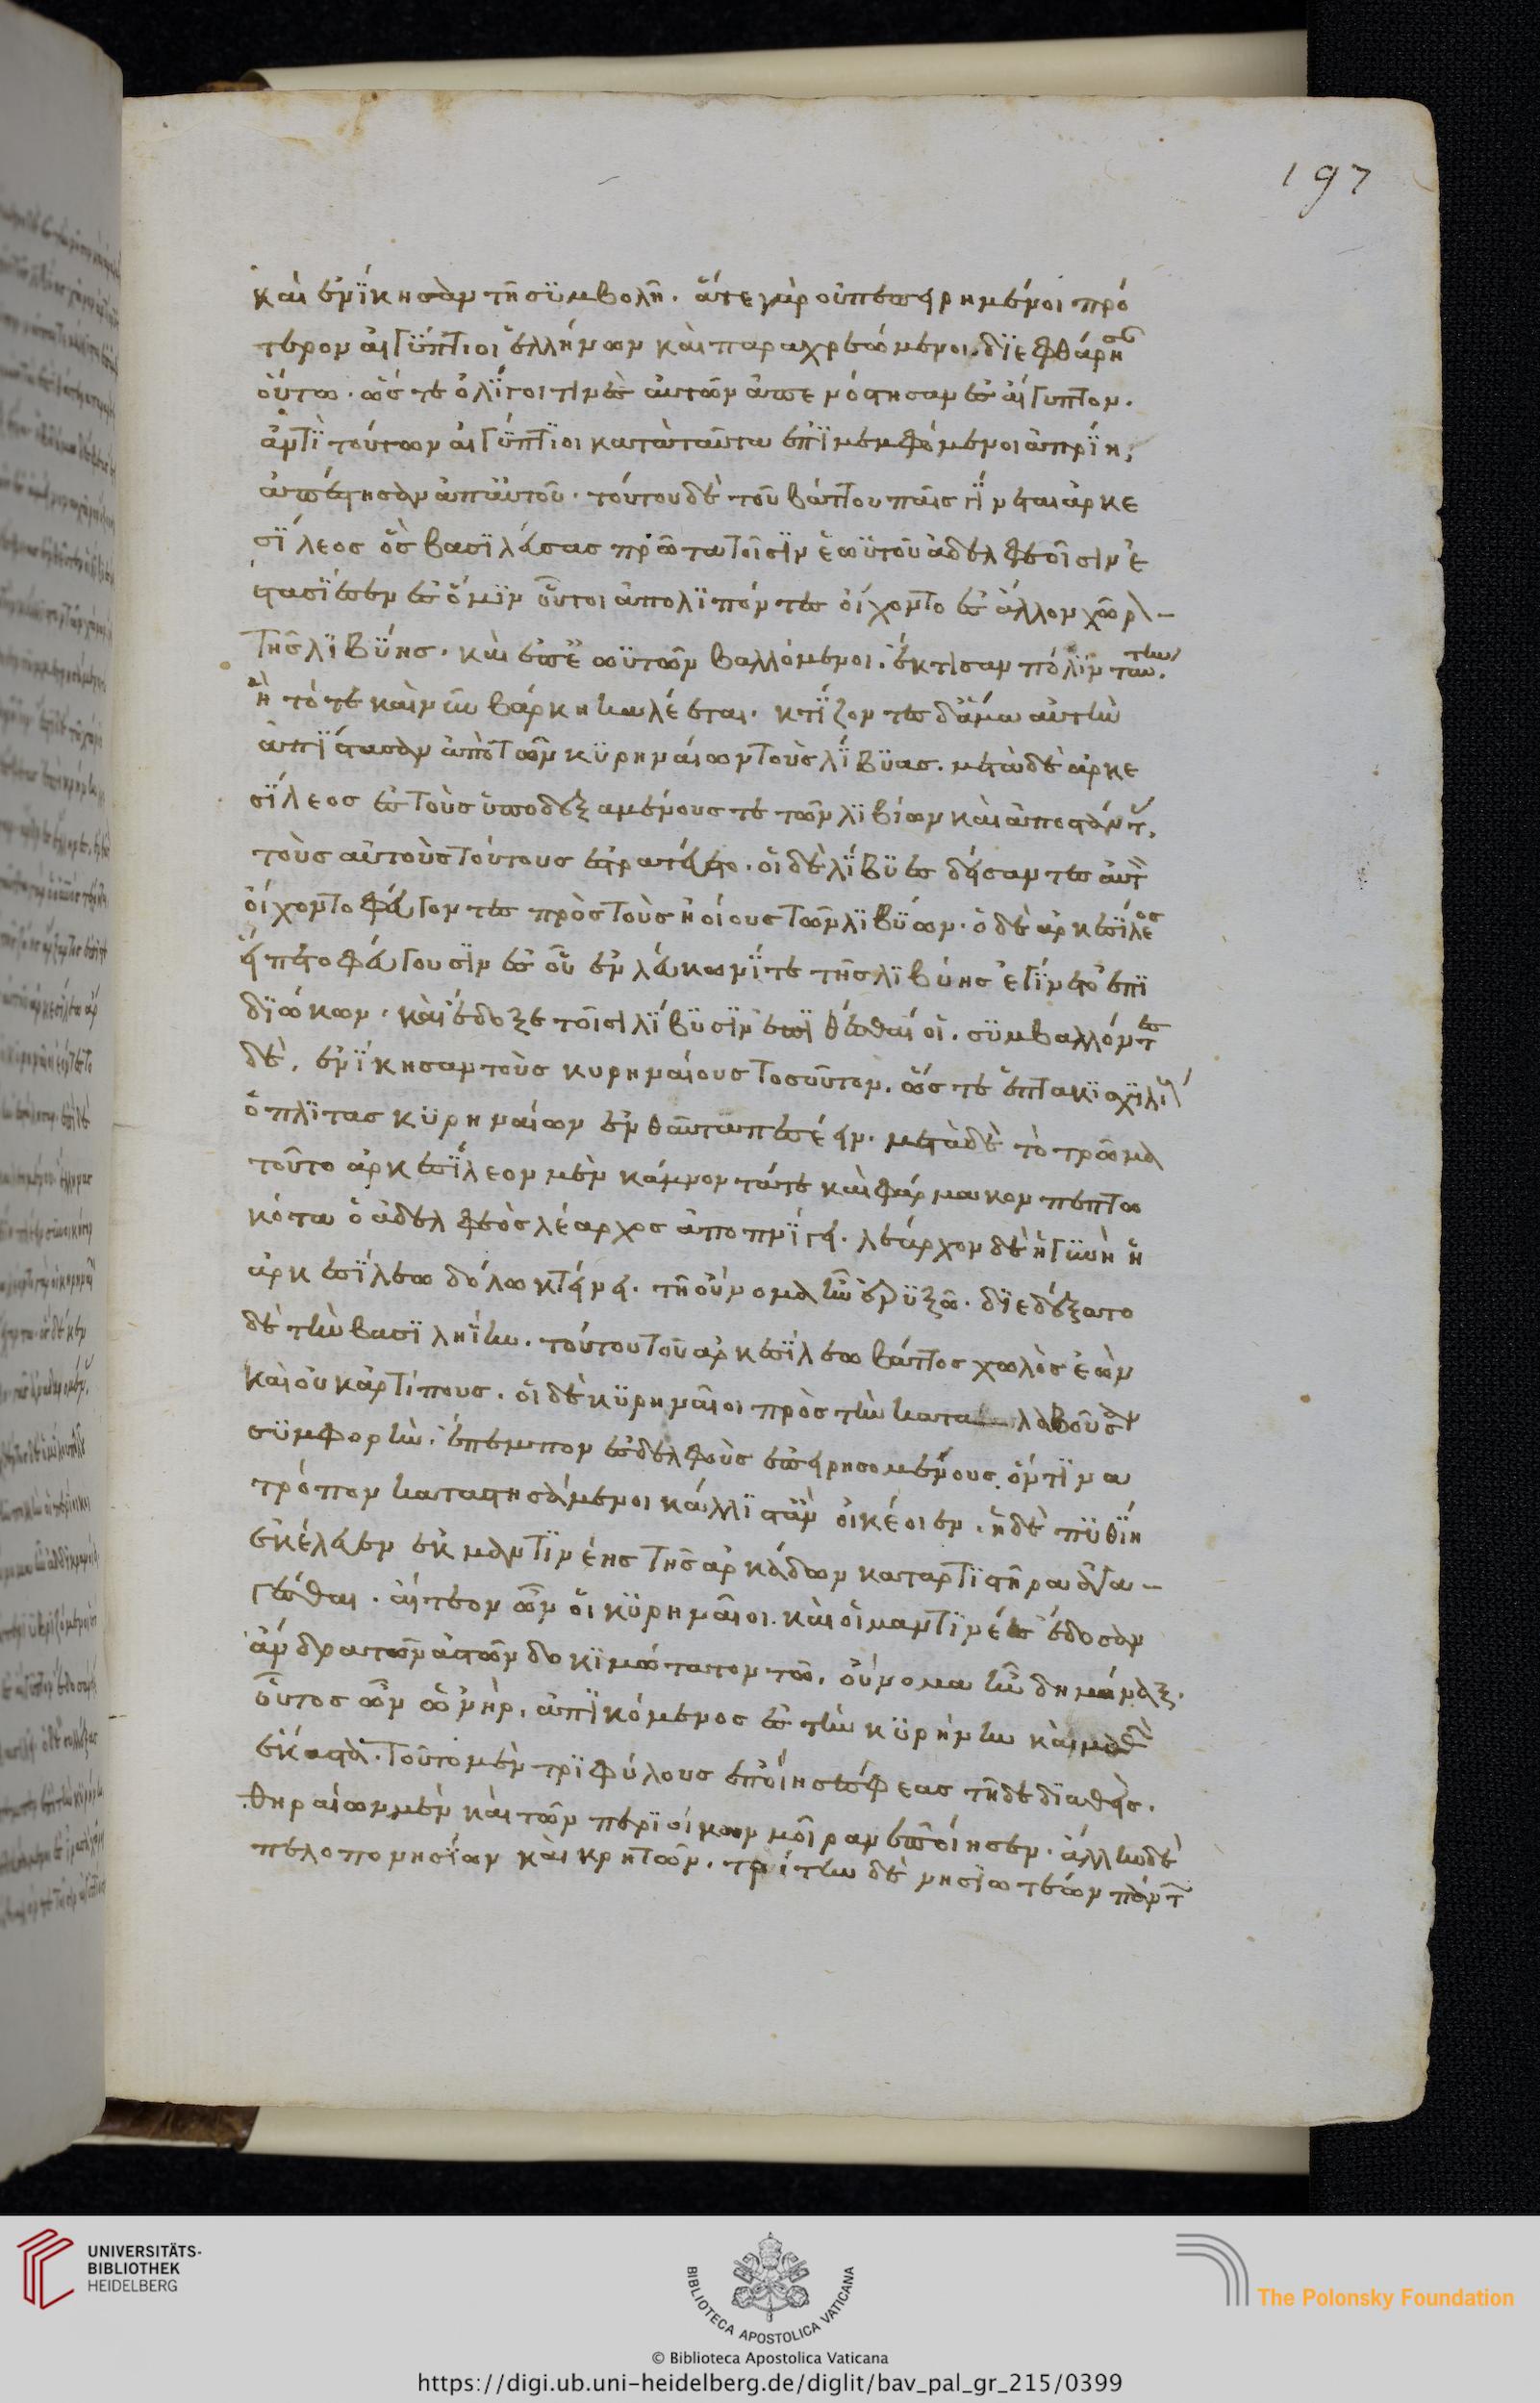 197
καὶ ἐνίκησαν τῆ συμβολῆ. ἅτε γὰρ οὐ πεπειρημένοι πρό
τερον αἰγύπτιοι ἑλλήνων καὶ παραχρεώμενοι. διεφθάρησαν
οὕτω. ὥς τε ὀλίγοι τινὲς αὐτῶν ἀπενόστησαν ἐς αἴγυπτον.
ἀντὶ τούτων αἰγύπτιοι κατὰ ταῦτα ἐπιμεμφόμενοι ἀπρίη,
ἀπέστησαν ἀπ' αὐτοῦ. τούτου δὲ τοῦ βάττου παῖς γίνεται ἀρκε
σίλεος ὃς βασιλεύσας πρῶτα τοῖσιν ἑωυτοῦ ἀδελφεοῖσιν ἐ
στασίασεν ἐς ὅ μιν οὗτοι ἀπολιπόντες οἴχοντο ἐς ἄλλον χῶρον
τῆς λιβύης. καὶ ἐπ' ἑωυτῶν βαλλόμενοι. ἔκτισαν πόλιν ταύτην.
ἣ τότε καὶ νῦν βάρκη καλέεται. κτίζοντες δ' ἅμα αὐτὴν
ἀπιστᾶσαν ἀπὸ τῶν κυρηναίων τοὺς λίβυας. μετὰ δὲ ἀρκε
σίλεος ἐς τοὺς ὑποδεξαμένους τε τῶν λιβίων καὶ ἀποστάντας
τοὺς αὐτοὺς τούτους ἐστρατεύετο. οἱ δὲ λίβυες δείσαντες αὐτὸν
οἴχοντο φεύγοντες πρὸς τοὺς ἠοίους τῶν λιβύων. ὁ δὲ ἀρκεσίλεος
εἵπετο φεύγουσιν ἐς οὗ ἐν λεύκωνί τε τῆς λιβύης ἐγίνετο ἐπι
διώκων. καὶ ἔδοξε τοῖσι λίβυσιν ἐπιθέσθαι οἱ. συμβαλλόντες
δὲ, ἐνίκησαν τοὺς κυρηναίους τοσοῦτον. ὥς τε ἑπτακισχιλίους
ὁπλίτας κυρηναίων ἐνθαῦτα πεσέειν. μετὰ δὲ τὸ τρῶμα
τοῦτο ἀρκεσίλεον μὲν κάμνοντά τε καὶ φάρμακον πεπτω
κότα ὁ ἀδελφεὸς λέαρχος ἀποπνίγει. λέαρχον δὲ ἡ γυνὴ ἡ
ἀρκεσίλεω δόλω κτείνει. τῆ οὔνομα ἦν ἐρυξώ. διεδέξατο
δὲ τὴν βασιληίην. τούτου τοῦ ἀρκεσίλεω βάττος χωλὸς ἐὼν
καὶ οὐκ ἀρτίπους. οἱ δὲ κυρηναῖοι πρὸς τὴν καταλαβοῦσαν
συμφορὴν. ἔπεμπον ἐς δελφοὺς ἐπειρησομένους. ὅντινα
τρόπον καταστησάμενοι κάλλιστα ἂν οἰκέοιεν. ἡ δὲ πυθίη
ἐκέλευεν ἐκ μαντινέης τῆς ἀρκάδων καταρτιστῆρα ἀγα-
γέσθαι. αἴτεον ὦν οἱ κυρηναῖοι. καὶ οἱ μαντινέες ἔδοσαν
ἄνδρα τῶν ἀστῶν δοκιμώτατον τῶ, οὔνομα ἦν δημώναξ.
οὗτος ὦν ὡνὴρ, ἀπικόμενος ἐς τὴν κυρήνην καὶ μαθὼν
ἕκαστα. τοῦτο μὲν τριφύλους ἐποίησέ σφεας τῆδε διαθεὶς.
θηραίων μὲν καὶ τῶν περιοίκων μοῖραν ἐποίησεν. ἄλλην δὲ
πελοποννησίων καὶ κρητῶν. τρίτην δὲ νησιωτέων πάντων
UNIVERSITÄTS-
BIBLIOTHEK
HEIDELBERG
BIBLIOTECA APOSTOLICA VATICANA
The Polonsky Foundation
© Biblioteca Apostolica Vaticana
https://digi.ub.uni-heidelberg.de/diglit/bav_pal_gr_215/0399